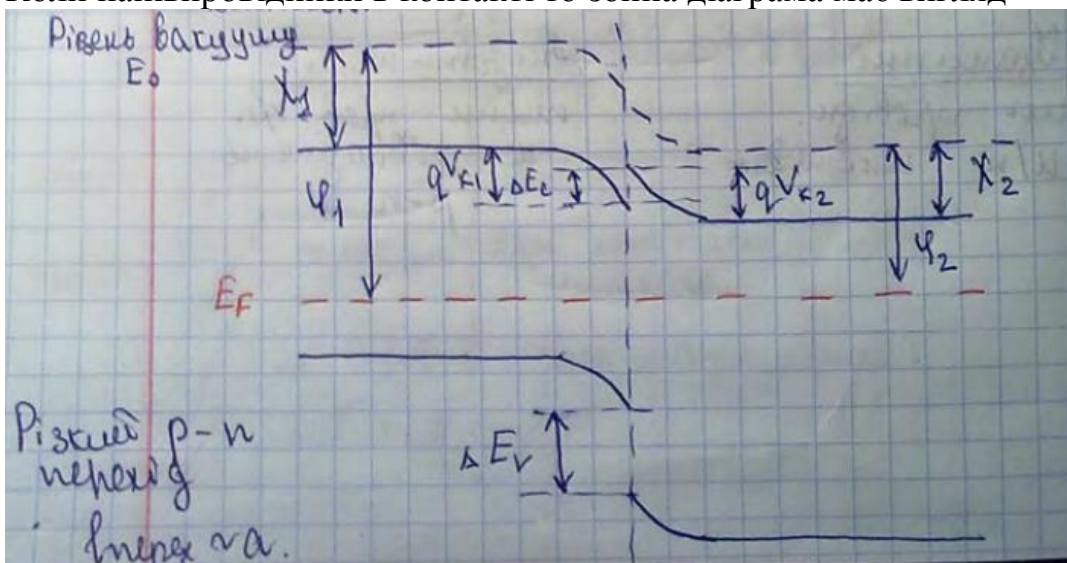 Коли напівпровідники в контакті то зонна діаграма має вигляд
Рівень вакууму
E₀
χ₁
φ₁
qVк₁
ΔEc
qVк₂
χ₂
φ₂
E_F
Різкий p-n
перехід
ΔEv
ℓперех ~ a.